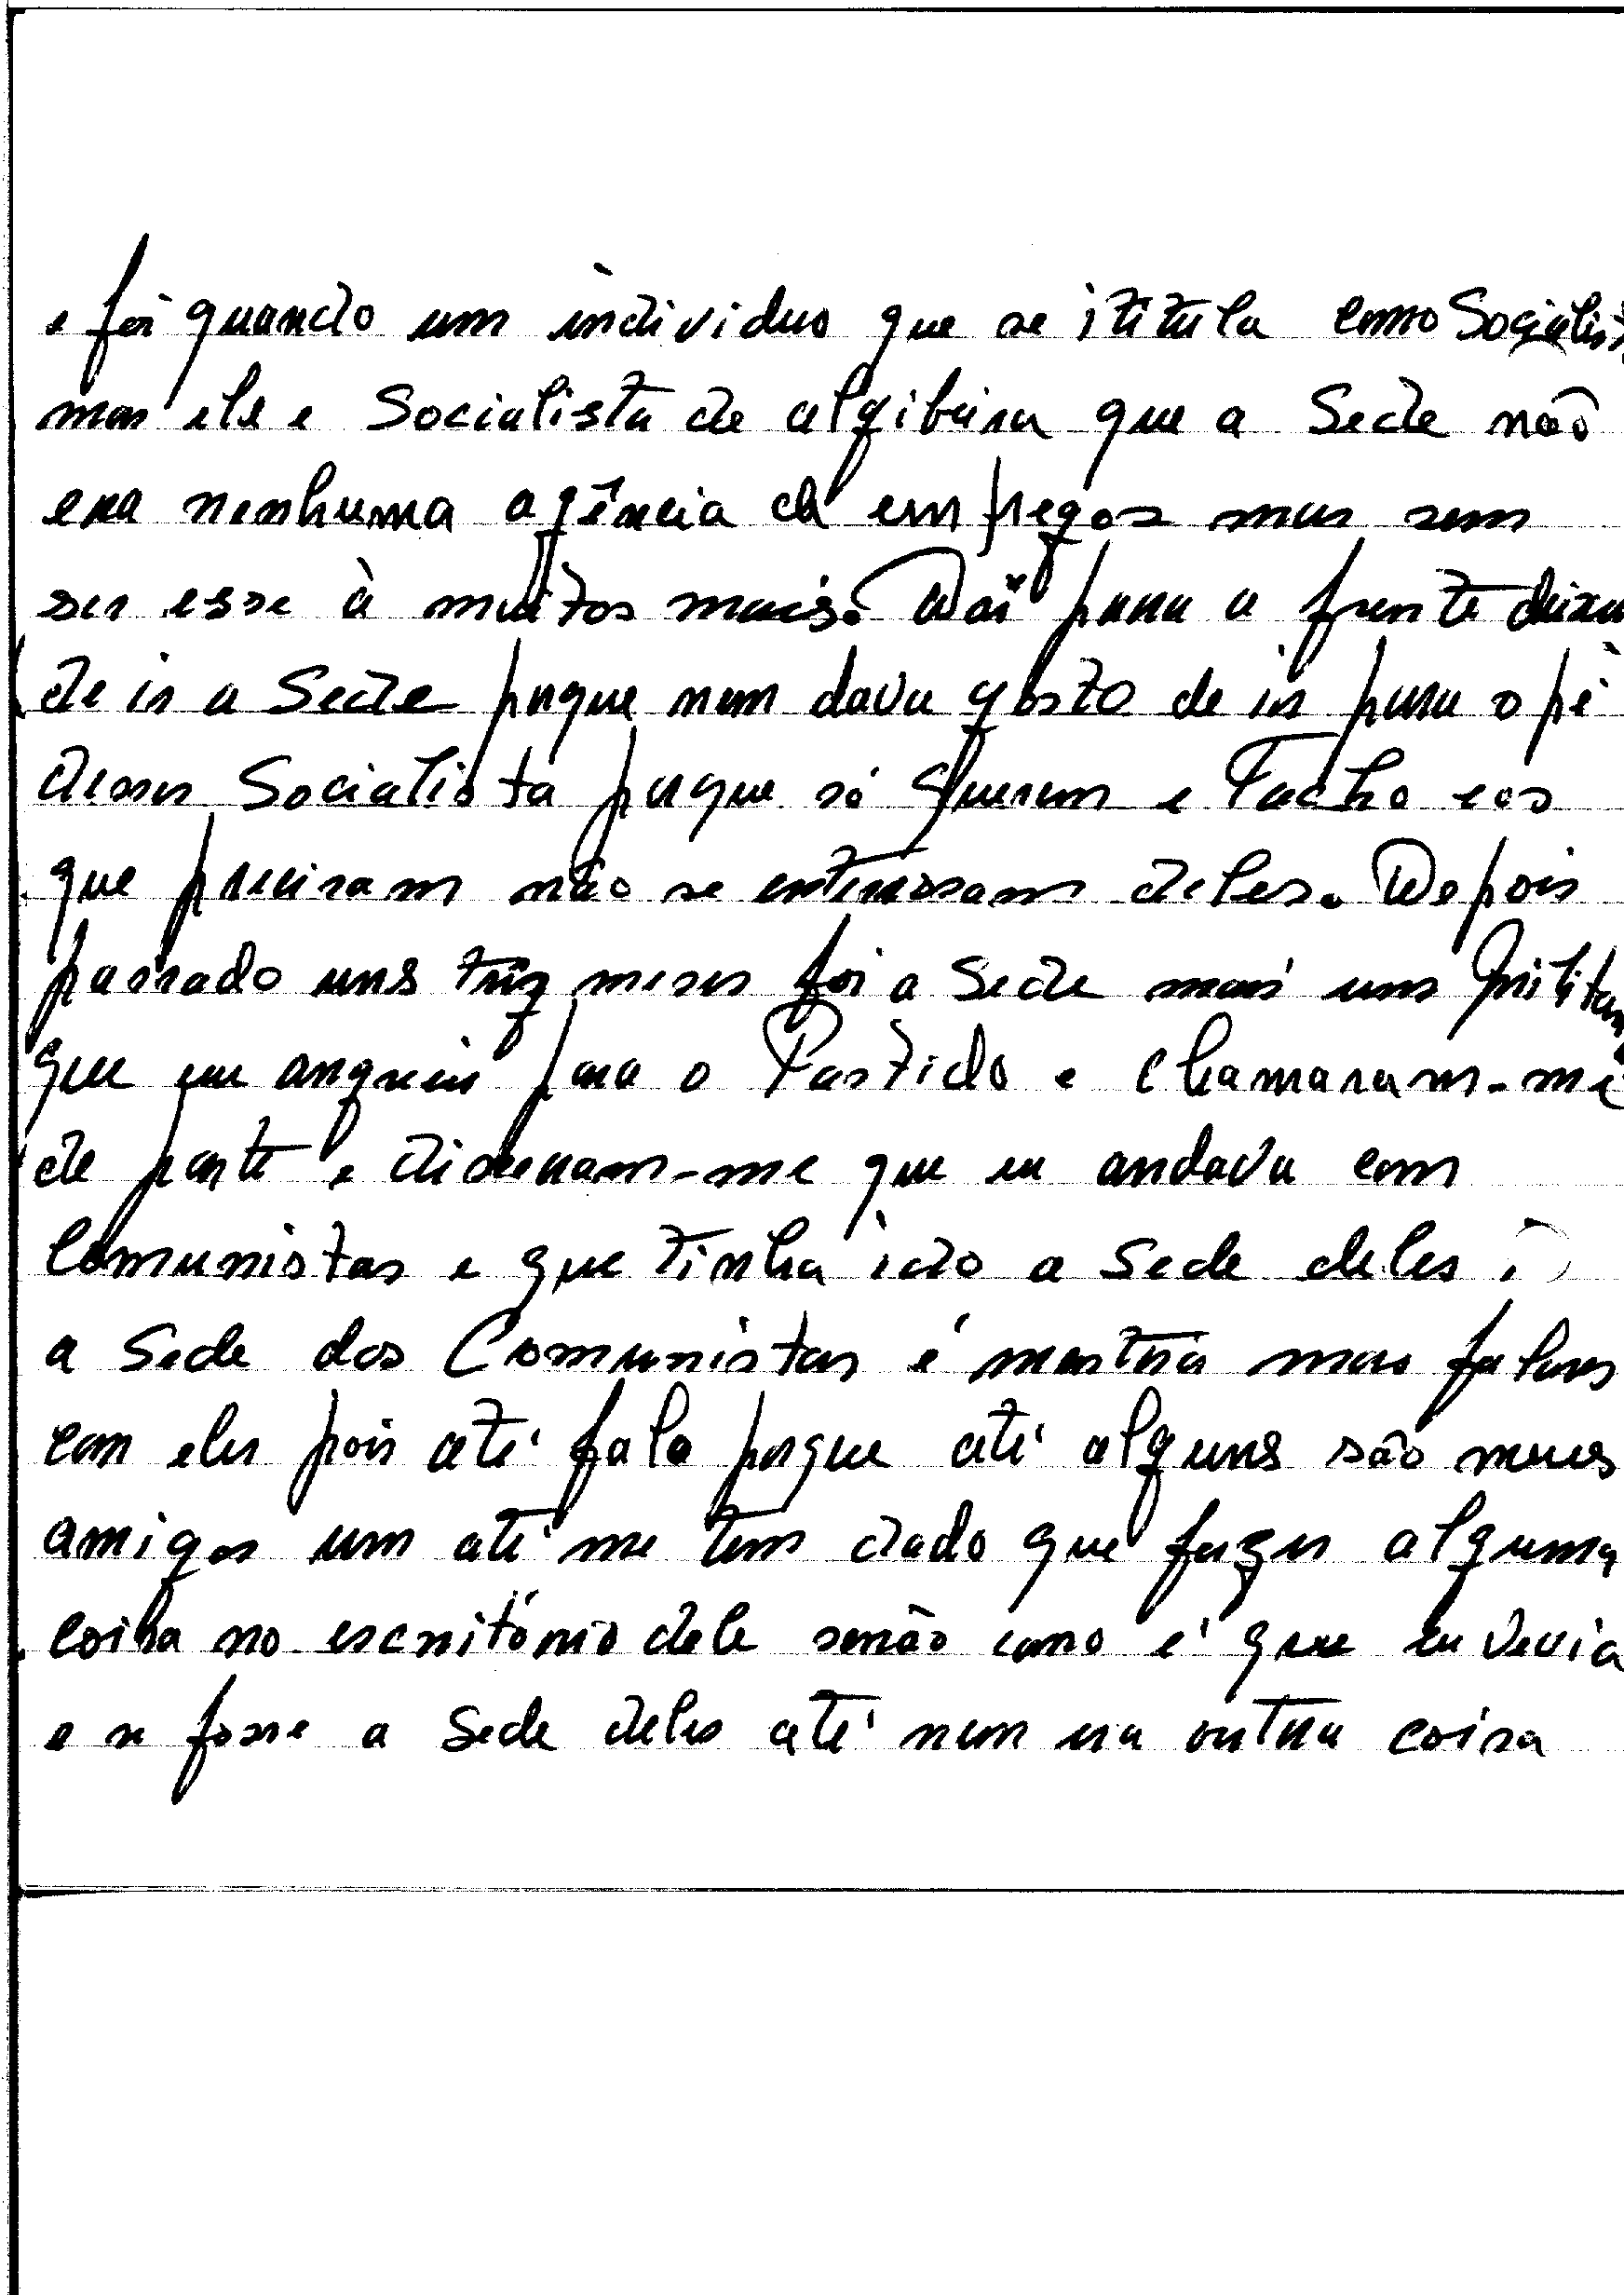 e foi quando um individuo que se ititula como Socialist
mas ele e Socialista de algibeira que a Sede não
era nenhuma agência de empregos mas sem
ser esse à muitos mais. Daí para a frente deixei
de ir a Sede porque nem dava gosto de ir para o pé
desses Socialista porque só querem e Tacho e os
que precisam não se enteresam deles. Depois
passado uns trêz meses foi a Sede mais uns Militan
que eu angreiei para o Partido e chamaram-me
de parte e disseram-me que eu andava com
Comunistas e que tinha ido a Sede deles
a Sede dos Comunistas é mentira mas falares
com eles pois até falo porque até alguns são meus
amigos um até me tem dado que fazer alguma
coisa no escritório dele senão como é que eu vevia
e se fosse a Sede deles até nem era outra coisa